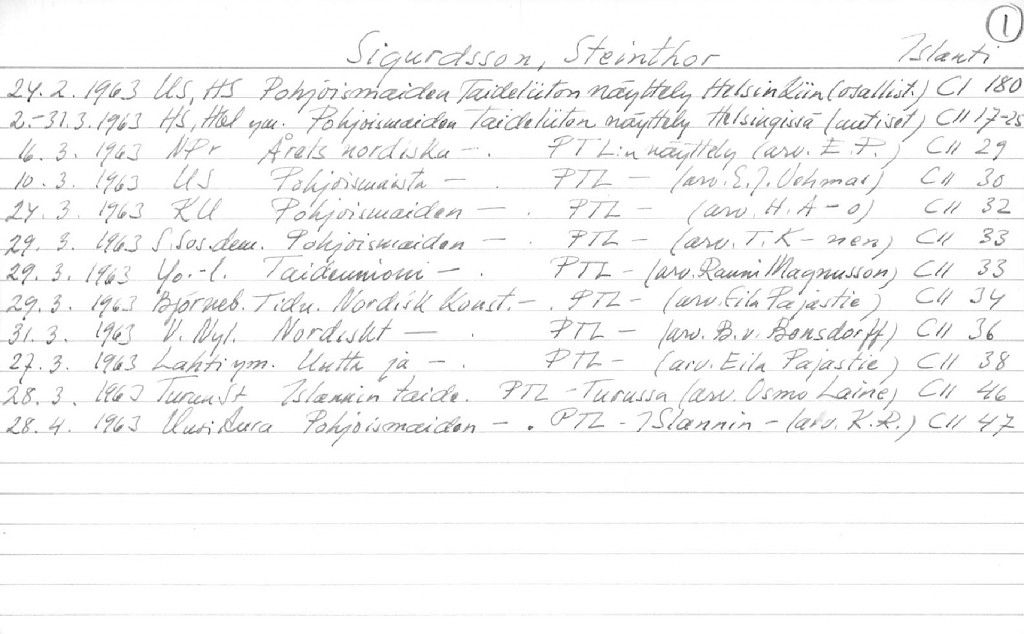 1
Sigurdsson, Steinthor Islanti
24.2.1963 US, HS Pohjoismaiden Taideliiton näyttely Helsinkiin (osallist.) CI 180
2.-31.3.1963 HS, Hbl ym. Pohjoismaiden Taideliiton näyttely Helsingissä (uutiset) CII 17-25
16.3.1963 NPr Årets nordiska - . PTL:n näyttely (arv. E.P.) CII 29
10.3.1963 US Pohjoismaista - PTL - (arv. E.J. Vehmas) CII 30
24.3.1963 KU Pohjoismaiden - . PTL - (arv. H.A-o) CII 32
29.3.1963 S.Sos.dem. Pohjoismaiden - . PTL - (arv. T.K-nen) CII 33
29.3.1963 Yo.-l. Taideunioni - . PTL - (arv. Rauni Magnusson) CII 33
29.3.1963 Björneb. Tidn. Nordisk Konst. - . PTL - (arv. Eila Pajastie) CII 34
31.3.1963 V. Nyl. Nordiskt - . PTL - (arv. B.v. Bonsdorff) CII 36
27.3.1963 Lahti ym. Uutta ja - . PTL - (arv. Eila Pajastie) CII 38
28.3.1963 TurunSt Islannin taide. PTL - Turussa (arv. Osmo Laine) CII 46
28.4.1963 Uusi Aura Pohjoismaiden - . PTL - Islannin - (arv. K.R.) CII 47